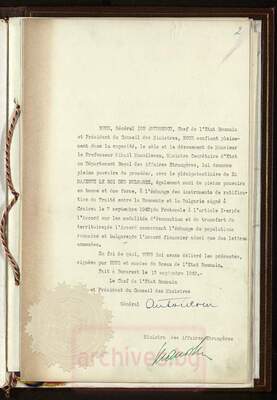 2
NOUS, Général ION ANTONESCU, Chef de l'Etat Roumain
et Président du Conseil des Ministres, NOUS confiant pleine-
ment dans la capacité, le zèle et le dévouement de Monsieur
le Professeur Mihail Manoilesco, Ministre Secrétaire d'Etat
au Département Royal des Affaires Etrangères, lui donnons
pleins pouvoirs de procéder, avec le plénipotentiaire de SA
MAJESTE LE ROI DES BULGARES, également muni de pleins pouvoirs
en bonne et due forme, à l'échange des instruments de ratifica-
tion du Traité entre la Roumanie et la Bulgarie signé à
Craiova le 7 septembre 1940, du Protocole à l'article
l'Accord sur les modalités de l'évacuation et du transfert du
territoire, de l'Accord concernant l'échange de populations
roumaine et bulgare, de l'Accord financier ainsi que des lettres
annexées.
En foi de quoi, NOUS Lui avons délivré les présentes,
signées par NOUS et munies du Sceau de l'Etat Roumain.
Fait à Bucarest le septembre 1940.
Le Chef de l'Etat Roumain
et Président du Conseil des Ministres
Général Antonescu
Ministre des Affaires Etrangères
archives.bg